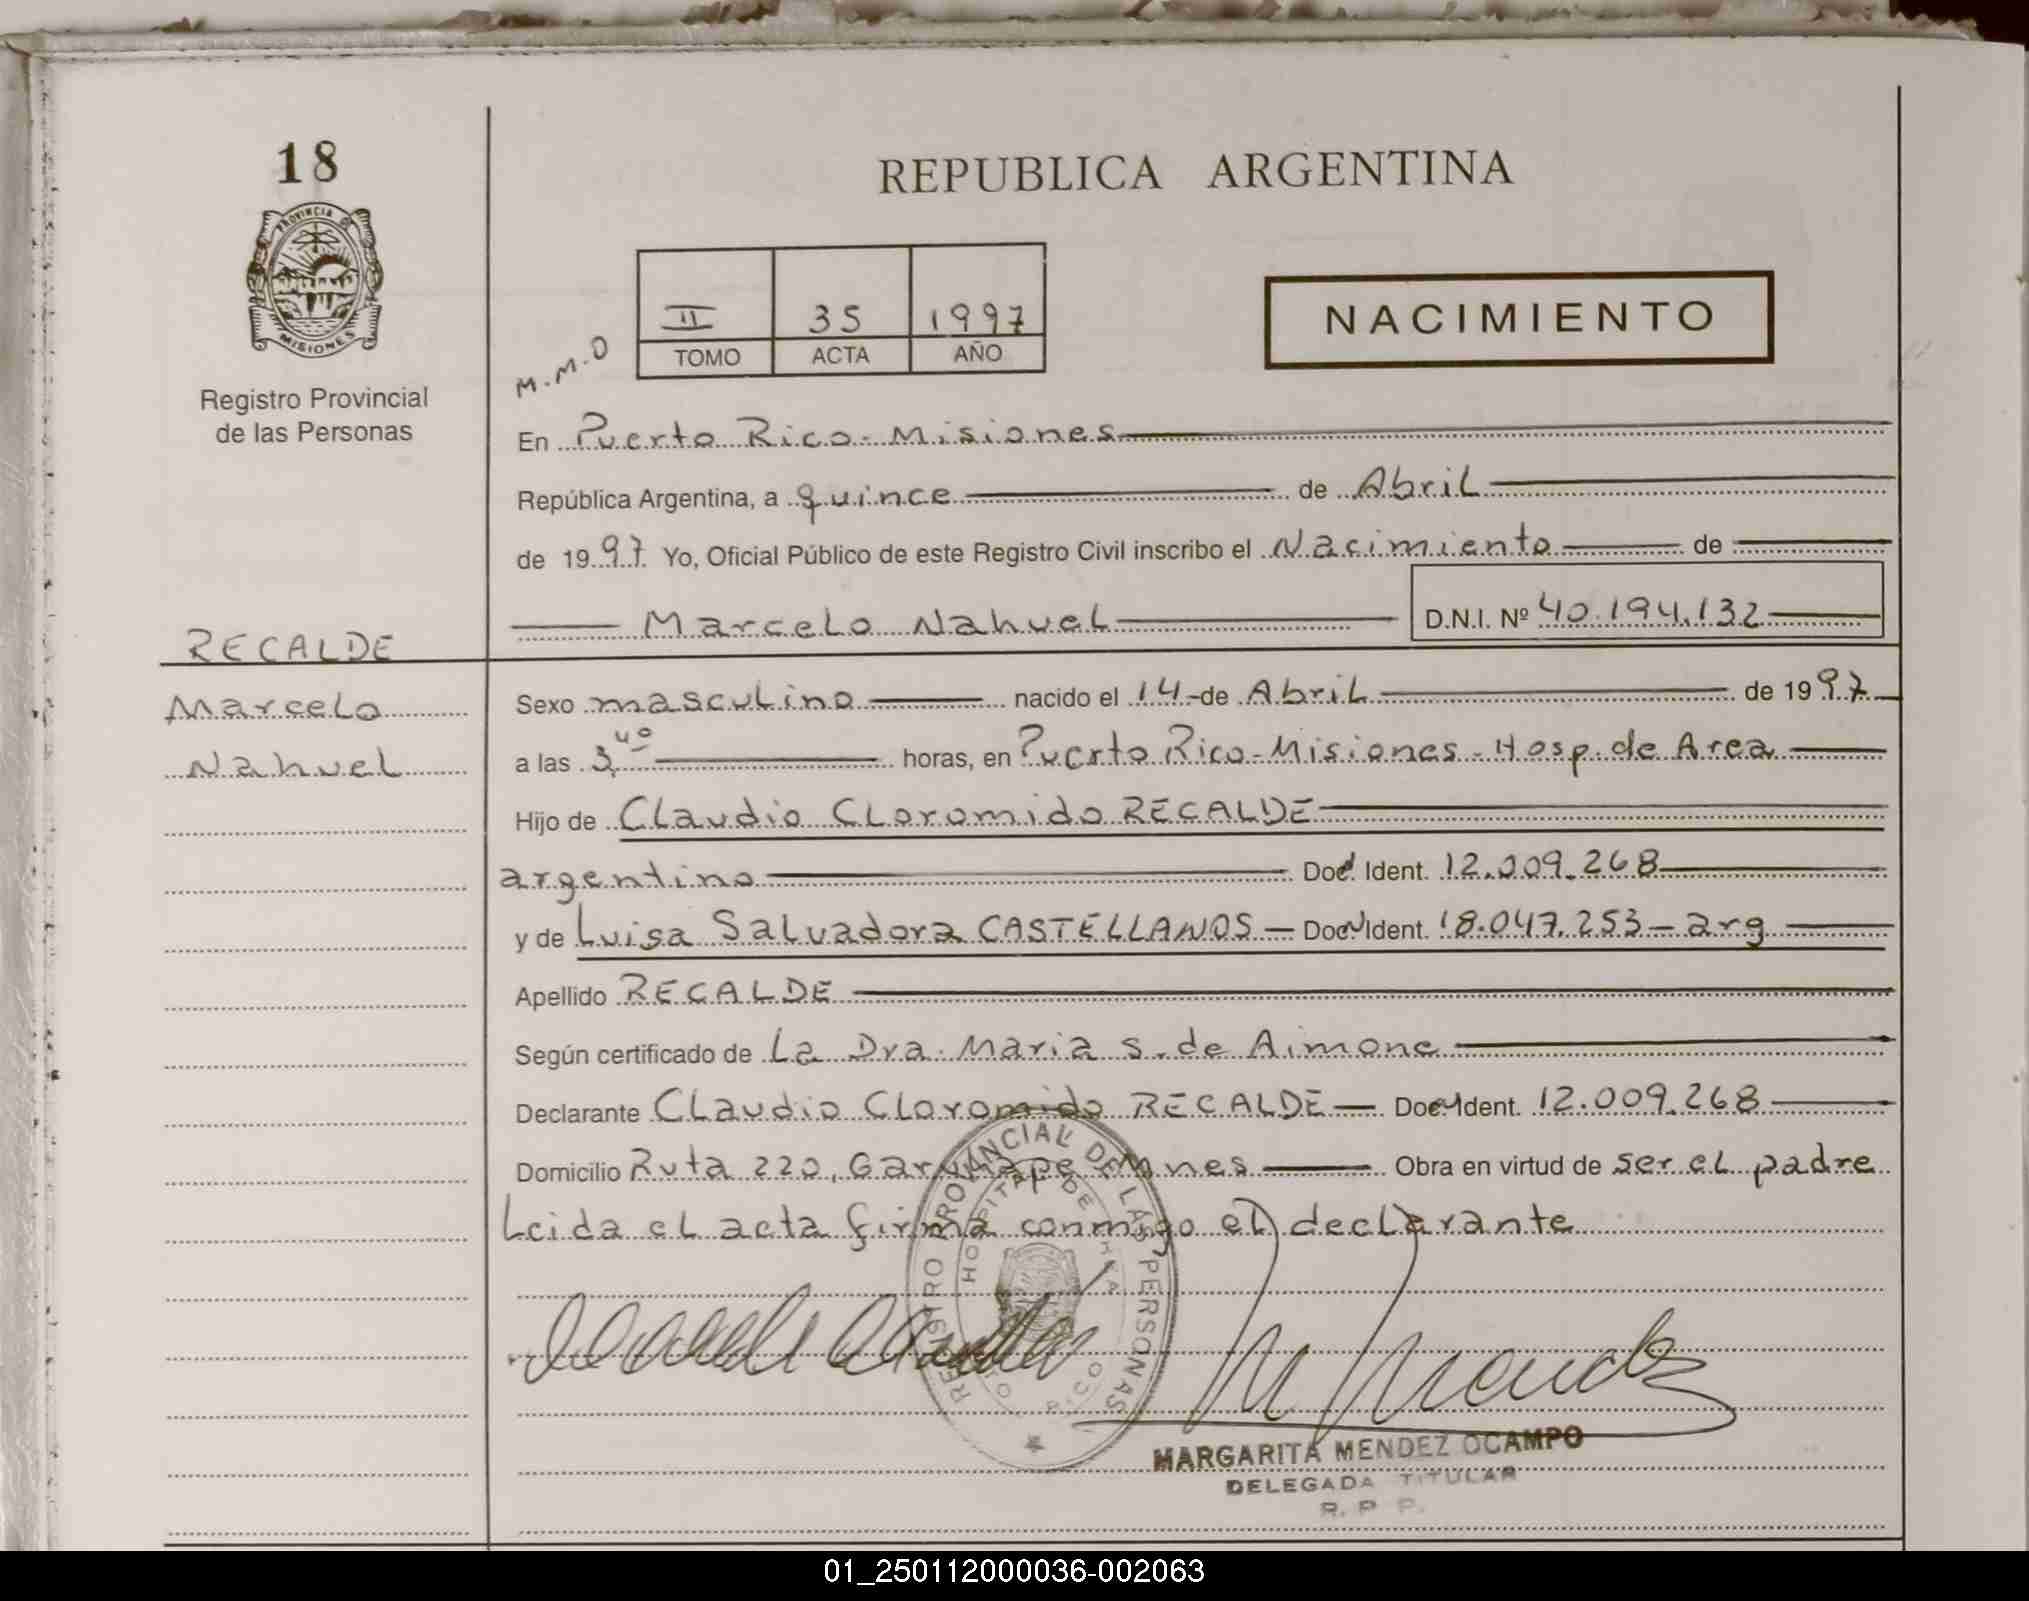 18
PROVINCIA DE
MISIONES
Registro Provincial
de las Personas
REPUBLICA ARGENTINA
II 35 1997
TOMO ACTA AÑO
NACIMIENTO
M.M.O
En Puerto Rico - Misiones
República Argentina, a quince de Abril
de 1997 Yo, Oficial Público de este Registro Civil inscribo el Nacimiento de
Marcelo Nahuel D.N.I. Nº 40.194.132
RECALDE
Marcelo
Nahuel
Sexo masculino nacido el 14 de Abril de 1997
a las 3,40 horas, en Puerto Rico - Misiones - Hosp. de Area
Hijo de Claudio Cloromido RECALDE
argentino Doc. Ident. 12.009.268
y de Luisa Salvadora CASTELLANOS - Doc. Ident. 18.047.253 - arg
Apellido RECALDE
Según certificado de La Dra. Maria S. de Aimone
Declarante Claudio Cloromido RECALDE - Doc. Ident. 12.009.268
Domicilio Ruta 220, Garuhape - Mnes Obra en virtud de ser el padre
Leida el acta firma conmigo el declarante
REGISTRO PROVINCIAL DE LAS PERSONAS
HOSPITAL DE AREA
RICO
MARGARITA MENDEZ OCAMPO
DELEGADA TITULAR
R. P. P.
01_250112000036-002063